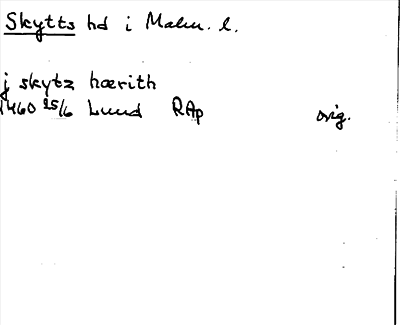 Skytts hd i Malm. l.
j skytz hærith
1460 25/6 Lund RAp orig.